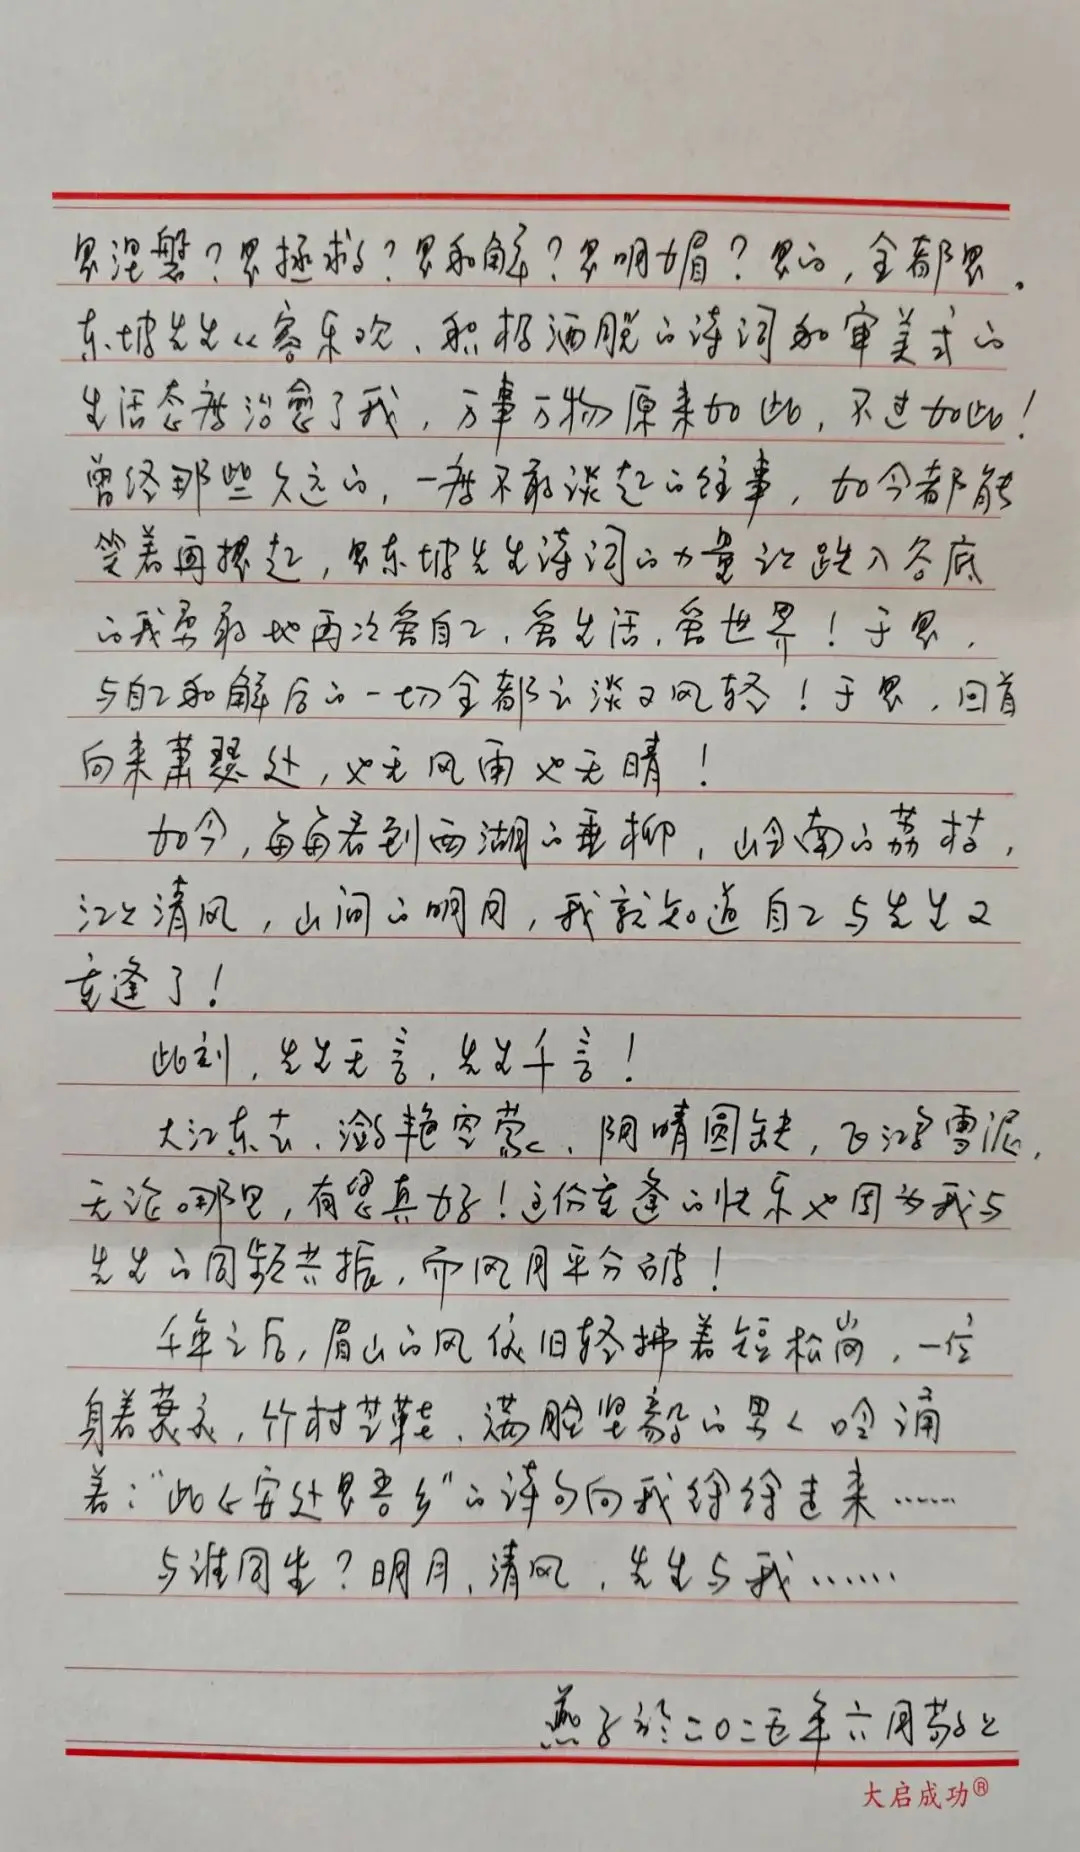 是涅槃？是拯救？是和解？是明媚？是的，全都是。
东坡先生从容乐观、积极洒脱的诗词和审美式的
生活态度治愈了我，万事万物原来如此，不过如此！
曾经那些久远的，一度不敢谈起的往事，如今都能
笑着再提起，是东坡先生诗词的力量让跌入谷底
的我勇敢地再次爱自己、爱生活、爱世界！于是，
与自己和解后的一切全都云淡又风轻！于是，回首
向来萧瑟处，也无风雨也无晴！
如今，每每看到西湖的垂柳，岭南的荔枝，
江上清风，山间的明月，我就知道自己与先生又
重逢了！
此刻，先生无言，先生千言！
大江东去、潋滟空蒙、阴晴圆缺，飞鸿雪泥，
无论哪里，有您真好！这份重逢的快乐也因为我与
先生的同频共振，而风月平分破！
千年之后，眉山的风依旧轻拂着短松岗，一位
身着蓑衣，竹杖芒鞋、满脸坚毅的男人吟诵
着：“此心安处是吾乡”的诗句向我徐徐走来……
与谁同坐？明月、清风，先生与我……
燕子於二〇二五年六月敬上
大启成功®